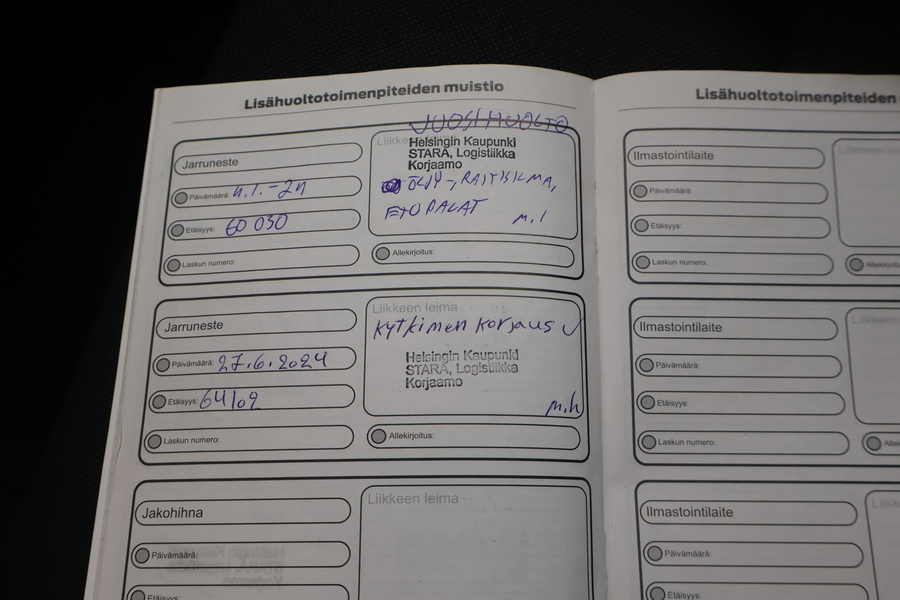 Lisähuoltotoimenpiteiden muistio
Jarruneste
Päivämäärä:
Etäisyys: 60 030
Laskun numero:
VUOSIHUOLTO
Liikkeen leima
Helsingin Kaupunki
STARA, Logistiikka
Korjaamo
ÖLJY-, RAITISILMA,
PALAT
Allekirjoitus:
Jarruneste
Päivämäärä: 27.6.2024
Etäisyys: 64102
Laskun numero:
Liikkeen leima
Kytkimen korjaus
Helsingin Kaupunki
STARA, Logistiikka
Korjaamo
m.h
Allekirjoitus:
Jakohihna
Päivämäärä:
Etäisyys:
Liikkeen leima
Lisähuoltotoimenpiteiden
Ilmastointilaite
Päivämäärä:
Etäisyys:
Laskun numero:
Ilmastointilaite
Päivämäärä:
Etäisyys:
Laskun numero:
Ilmastointilaite
Päivämäärä:
Etäisyys: